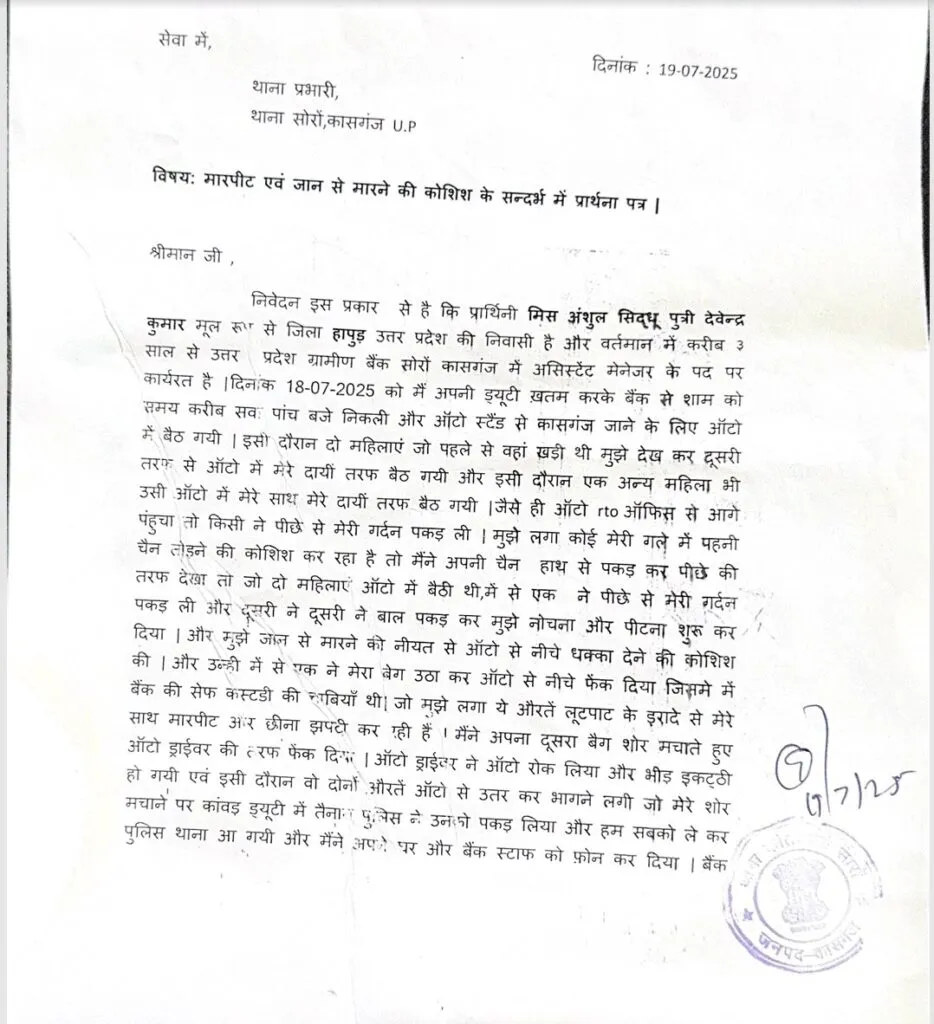 सेवा में,
दिनांक : 19-07-2025
थाना प्रभारी,
थाना सोरों,कासगंज U.P
विषय: मारपीट एवं जान से मारने की कोशिश के सन्दर्भ में प्रार्थना पत्र |
श्रीमान जी ,
निवेदन इस प्रकार से है कि प्रार्थिनी मिस अंशुल सिद्धू पुत्री देवेन्द्र
कुमार मूल रूप से जिला हापुड़ उत्तर प्रदेश की निवासी है और वर्तमान में करीब ३
साल से उत्तर प्रदेश ग्रामीण बैंक सोरों कासगंज में असिस्टेंट मेनेजर के पद पर
कार्यरत है |दिनांक 18-07-2025 को मैं अपनी ड्यूटी ख़तम करके बैंक से शाम को
समय करीब सवा पांच बजे निकली और ऑटो स्टैंड से कासगंज जाने के लिए ऑटो
में बैठ गयी | इसी दौरान दो महिलाएं जो पहले से वहां खड़ी थी मुझे देख कर दूसरी
तरफ से ऑटो में मेरे दायीं तरफ बैठ गयी और इसी दौरान एक अन्य महिला भी
उसी ऑटो में मेरे साथ मेरे दायीं तरफ बैठ गयी |जैसे ही ऑटो rto ऑफिस से आगे
पंहुचा तो किसी ने पीछे से मेरी गर्दन पकड़ ली | मुझे लगा कोई मेरी गले में पहनी
चैन तोड़ने की कोशिश कर रहा है तो मैंने अपनी चैन हाथ से पकड़ कर पीछे की
तरफ देखा तो जो दो महिलाएं ऑटो में बैठी थी,में से एक ने पीछे से मेरी गर्दन
पकड़ ली और दूसरी ने दूसरी ने बाल पकड़ कर मुझे नोचना और पीटना शुरू कर
दिया | और मुझे जान से मारने की नीयत से ऑटो से नीचे धक्का देने की कोशिश
की | और उन्ही में से एक ने मेरा बेग उठा कर ऑटो से नीचे फेंक दिया जिसमे में
बैंक की सेफ कस्टडी की चाबियाँ थी| जो मुझे लगा ये औरतें लूटपाट के इरादे से मेरे
साथ मारपीट और छीना झपटी कर रही हैं | मैंने अपना दूसरा बैग शोर मचाते हुए
ऑटो ड्राईवर की तरफ फेंक दिया | ऑटो ड्राईवर ने ऑटो रोक लिया और भीड़ इकट्ठी
हो गयी एवं इसी दौरान वो दोनों औरतें ऑटो से उतर कर भागने लगी जो मेरे शोर
मचाने पर कांवड़ ड्यूटी में तैनात पुलिस ने उनको पकड़ लिया और हम सबको ले कर
पुलिस थाना आ गयी और मैंने अपने घर और बैंक स्टाफ को फ़ोन कर दिया | बैंक
जनपद-कासगंज